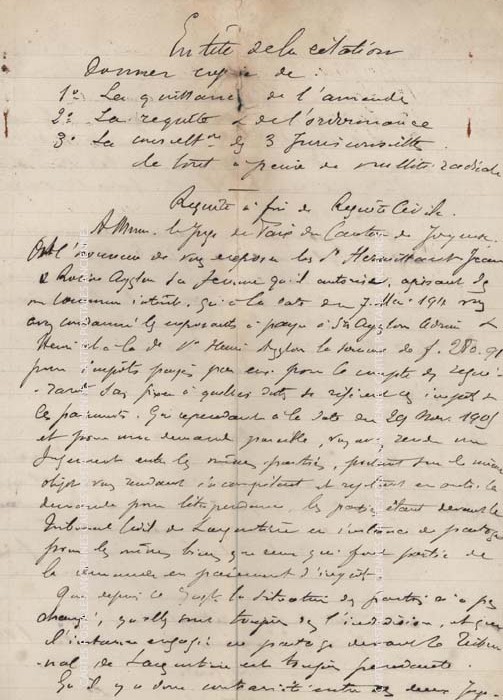 En tête de la citation
Donner copie de :
1° La quittance de l'amende
2° La requête & de l'ordonnance
3° La consult^on des 3 Jurisconsultes
le tout à peine de nullité radicale
Requête à fin de Requête Civile.
A Monsr. le Juge de Paix du Canton de Joyeuse
Ont l'honneur de vous exposer les Sr Jean
& Rosine Ayglon sa femme qu'il autorise, agissant de
un commun intérêt, qu'à la date du 7 Mai 1911 vous
avez condamné les exposants à payer à Sr Ayglon Adrien &
Henri et à la de Ve Henri Ayglon la somme de f. 280.91
pour impôts payés par eux pour le compte des
ces paiements. Que cependant à la date du 29 Nov. 1905
et pour une demande pareille, vous avez rendu un
Jugement entre les mêmes parties, portant sur le même
objet vous rendant incompétent et rejetant en outre la
demande pour litispendance, les parties étant devant le
Tribunal Civil de Largentière en instance de partage
pour les mêmes biens que ceux qui font partie de
la demande en paiement d'impôt.
Que depuis ce la situation des parties n'a pas
changé, qu'elles sont toujours dans l'indivision, et que
l'instance engagée en partage devant le Tribu-
-nal de Largentière est toujours pendante.
Qu'il y a donc contrariété entre ces deux Juge